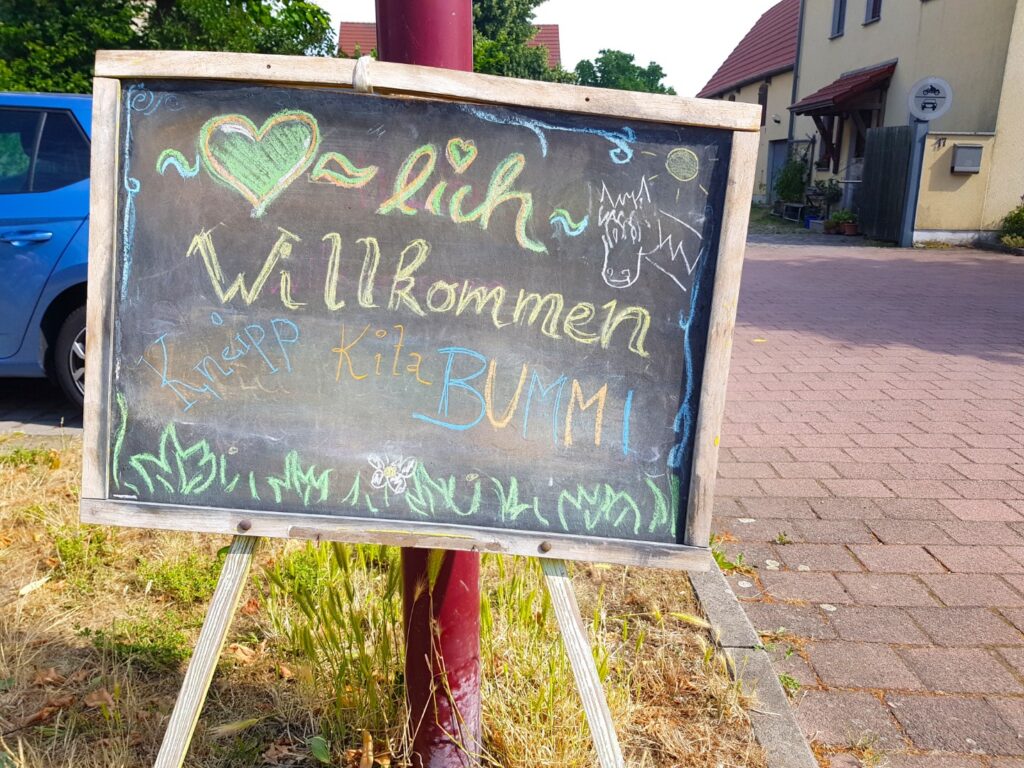 ~lich~
Willkommen
Kneipp Kita BUMMI
17